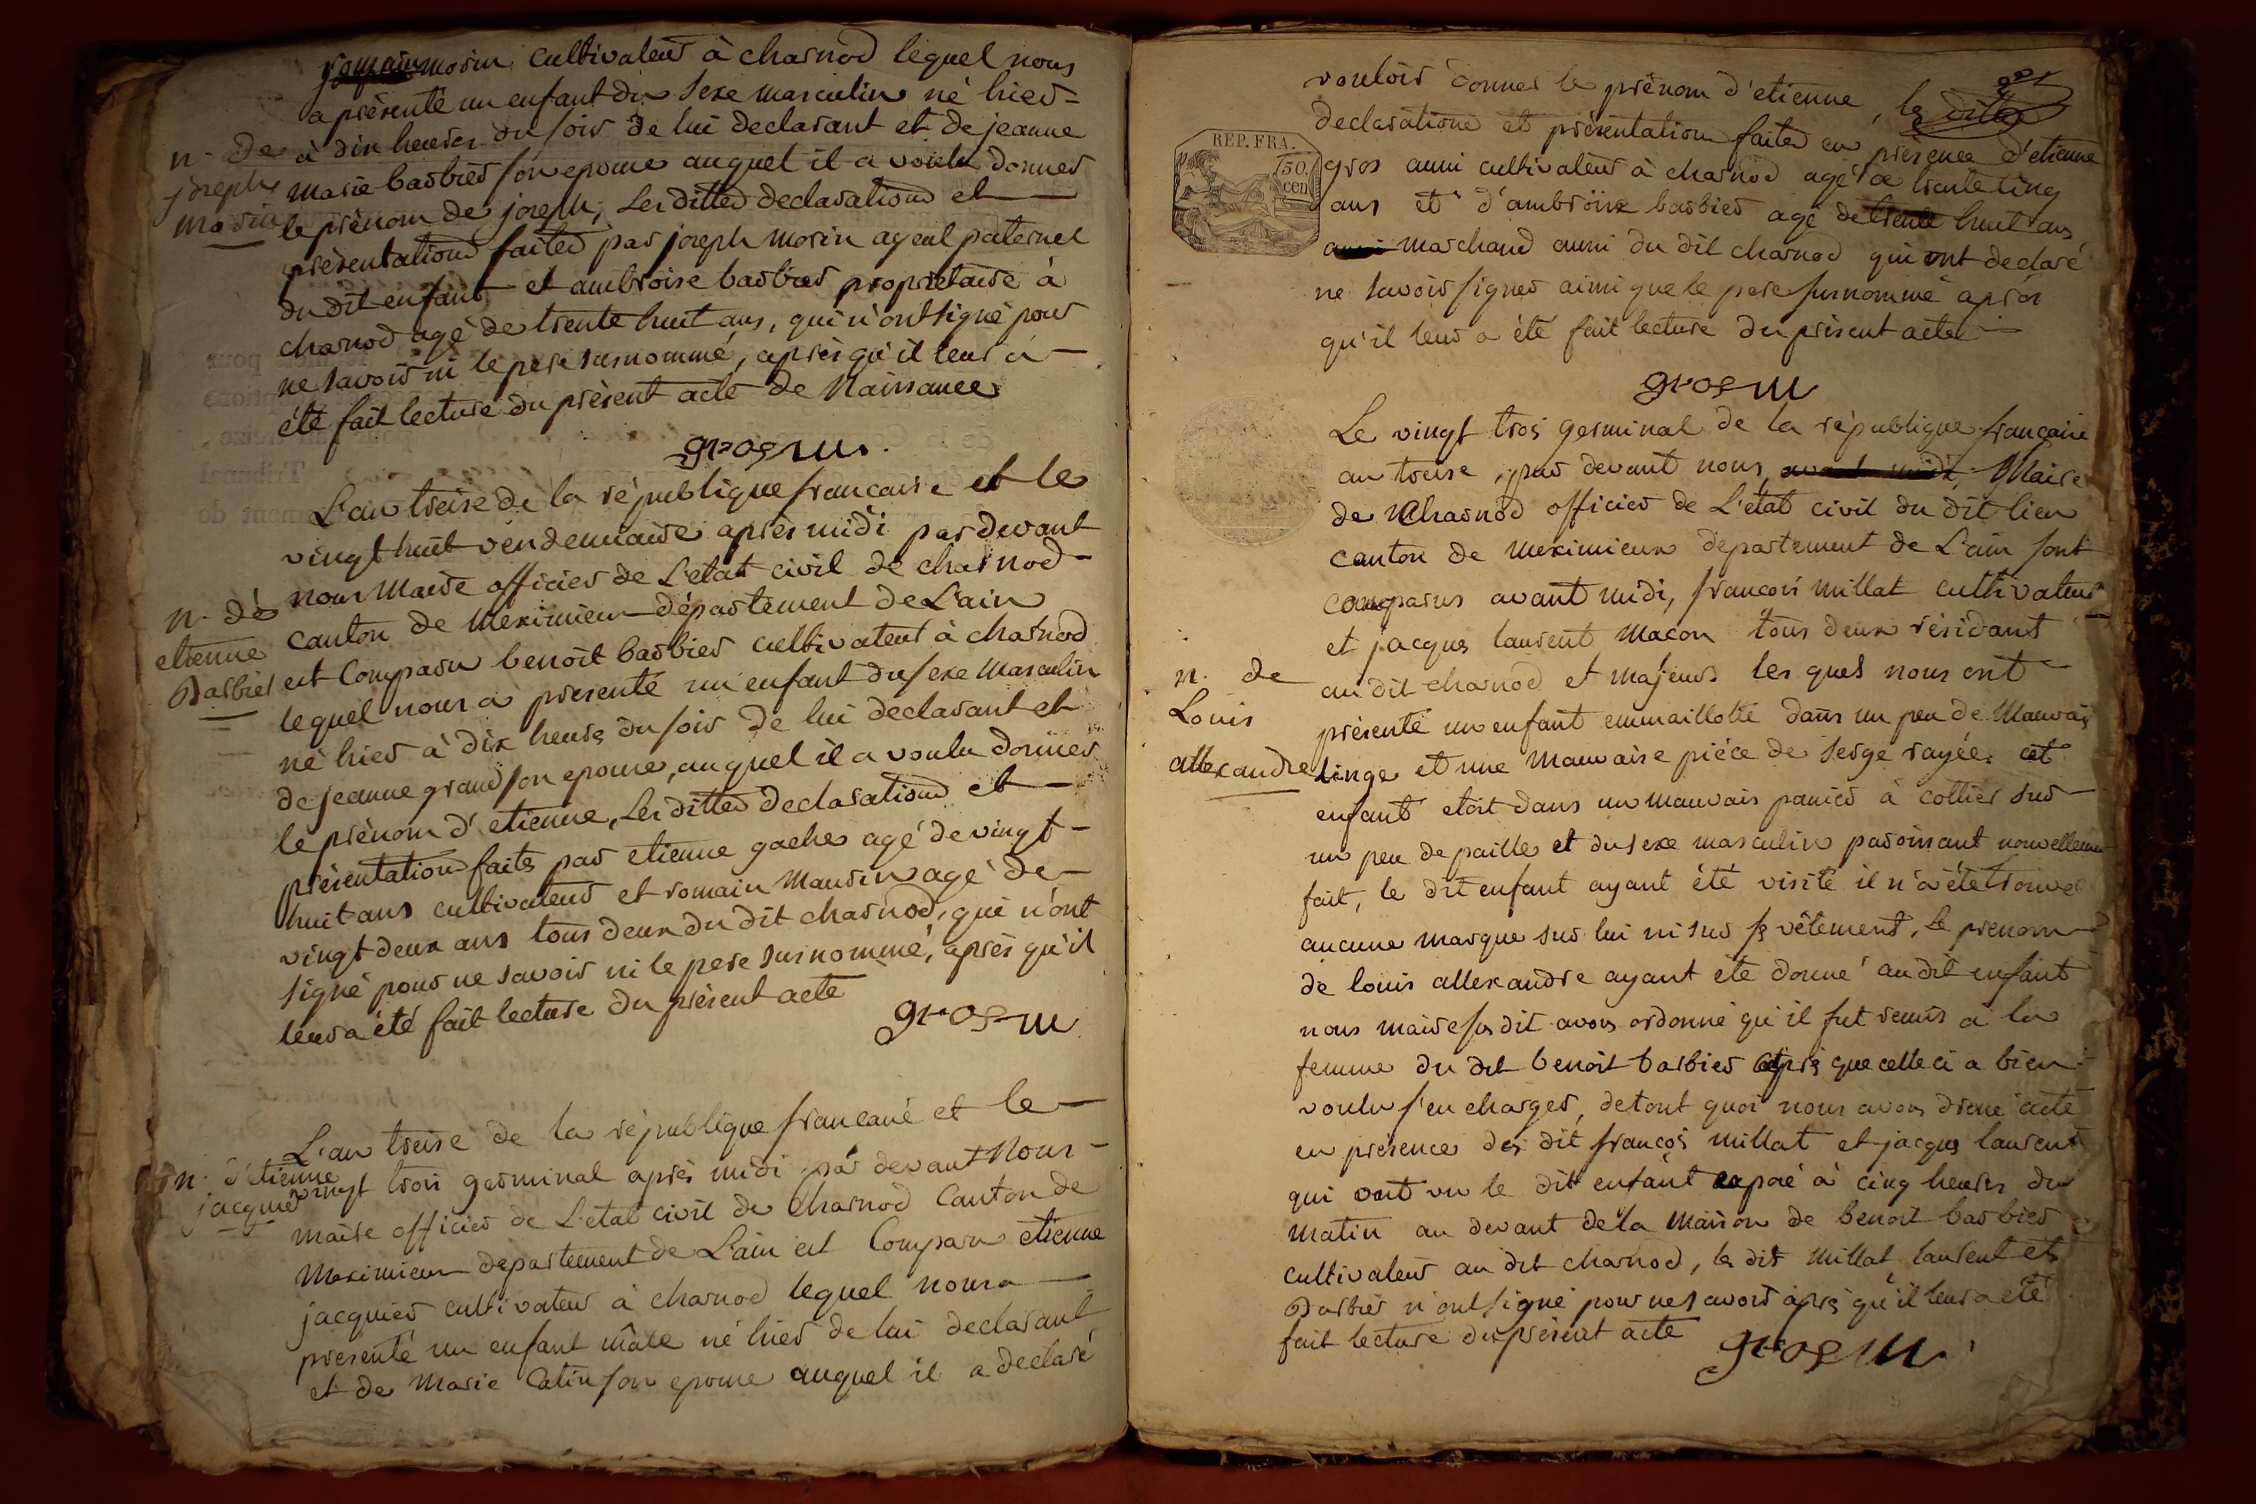 morin cultivateur à charnod lequel nous
a présenté un enfant du sexe masculin né hier
à dix heures du soir de lui declarant et de jeanne
marie barbier son epouse auquel il a voulu donner
le prénom de joseph, les dittes declarations et
présentations faites par joseph morin ayeul paternel
du dit enfant et ambroise barbier proprietaire à
charnod agé de trente huit ans, qui n'ont signé pour
ne savoir ni le pere susnommé, après qu'il leur a
été fait lecture du présent acte de Naissance
n. de
joseph
morin
gros m.
L'an treise de la république francaise et le
vingt huit vendemiaire après midi par devant
nous Maire officier de L'etat civil de charnod
canton de Meximieu département de L'ain
est Comparu benoit barbier cultivateur à charnod
lequel nous a presenté un enfant du sexe masculin
né hier à dix heures du soir de lui declarant et
de jeanne grand son epouse, auquel il a voulu donner
le prénom d'etienne, les dittes declarations et
présentation faites par etienne gache agé de vingt
huit ans cultivateur et romain Maurin agé de
vingt deux ans tous deux du dit charnod, qui n'ont
signé pour ne savoir ni le pere susnommé, après qu'il
leur a été fait lecture du présent acte
n. de
etienne
Barbier
gros m
L'an treise de la république francaise et le
vingt trois germinal après midi par devant Nous
maire officier de L'etat civil de Charnod Canton de
Meximieu departement de L'ain est Comparu etienne
jacquier cultivateur à charnod lequel nous a
presenté un enfant mâle né hier de lui declarant
et de Marie Catin son epouse auquel il a declaré
n. d'etienne
jacquier
vouloir donner le prénom d'etienne, les
declarations et présentation faites en présence d'etienne
gros aussi cultivateur à charnod agé de trente cinq
ans et d'ambroise barbier agé de trente huit ans
marchand aussi du dit charnod qui ont declaré
ne savoir signer ainsi que le pere susnommé après
qu'il leur a été fait lecture du présent acte
REP. FRA.
50
cen
gros m
Le vingt trois germinal de la république francaise
an treise, par devant nous, Maire
de Charnod officier de L'état civil du dit lieu
canton de Meximieux departement de L'ain sont
comparus avant midi, francois millat cultivateur
et jacques laurent Macon tous deux résidant
au dit charnod et majeurs les quels nous ont
présenté un enfant emmaillotté dans un peu de Mauvais
linge et une mauvaise piéce de serge rayée. cet
enfant etoit dans un mauvais panier à collier sur
un peu de paille et du sexe masculin paroissant nouvellement
fait, le dit enfant ayant été visité il n'a été trouvé
aucune marque sur lui ni sur ses vêtement, le prenom
de louis allexandre ayant été donné au dit enfant
nous maire susdit avons ordonné qu'il fut remis à la
femme du dit benoit barbier après que celle ci a bien
voulu s'en charger, de tout quoi nous avons dressé acte
en presence des dit françois millat et jacques laurent
qui ont vu le dit enfant exposé à cinq heures du
matin au devant de la Maison de benoit barbier
cultivateur au dit charnod, les dits Millat laurent et
Barbier n'ont signé pour ne savoir après qu'il leur a été
fait lecture du présent acte
n. de
Louis
allexandre
gros m.